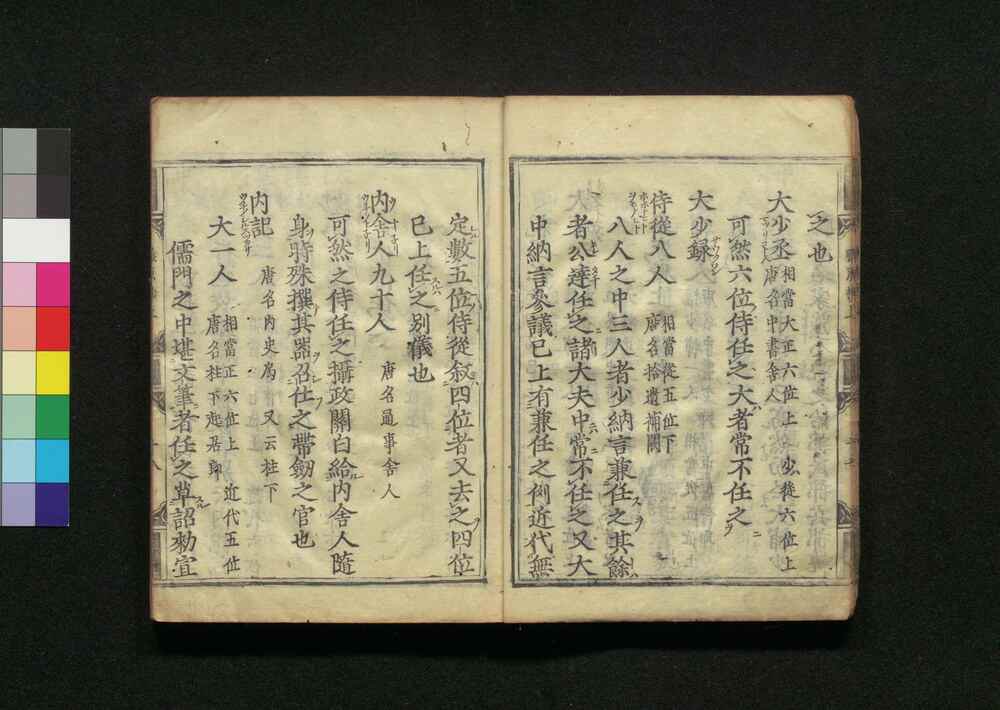 之也
大少丞 相當大正六位上 少從六位上
唐名中書舍人
可然六位侍任之大者常不任之
大少録
侍從八人 相當從五位下
唐名拾遺補闕
八人之中三人者少納言兼任之其餘
者公達任之諸大夫中常不任之又大
中納言參議已上有兼任之例近代無
定數五位侍從叙四位者又去之四位
已上任之別儀也
内舍人九十人 唐名通事舍人
可然之侍任之攝政關白給内舍人隨
身時殊撰其器召仕之帶劔之官也
内記 唐名内史局 又云柱下
大一人 相當正六位上 近代五位
唐名柱下起居郎
儒門之中堪文筆者任之草詔勅宣